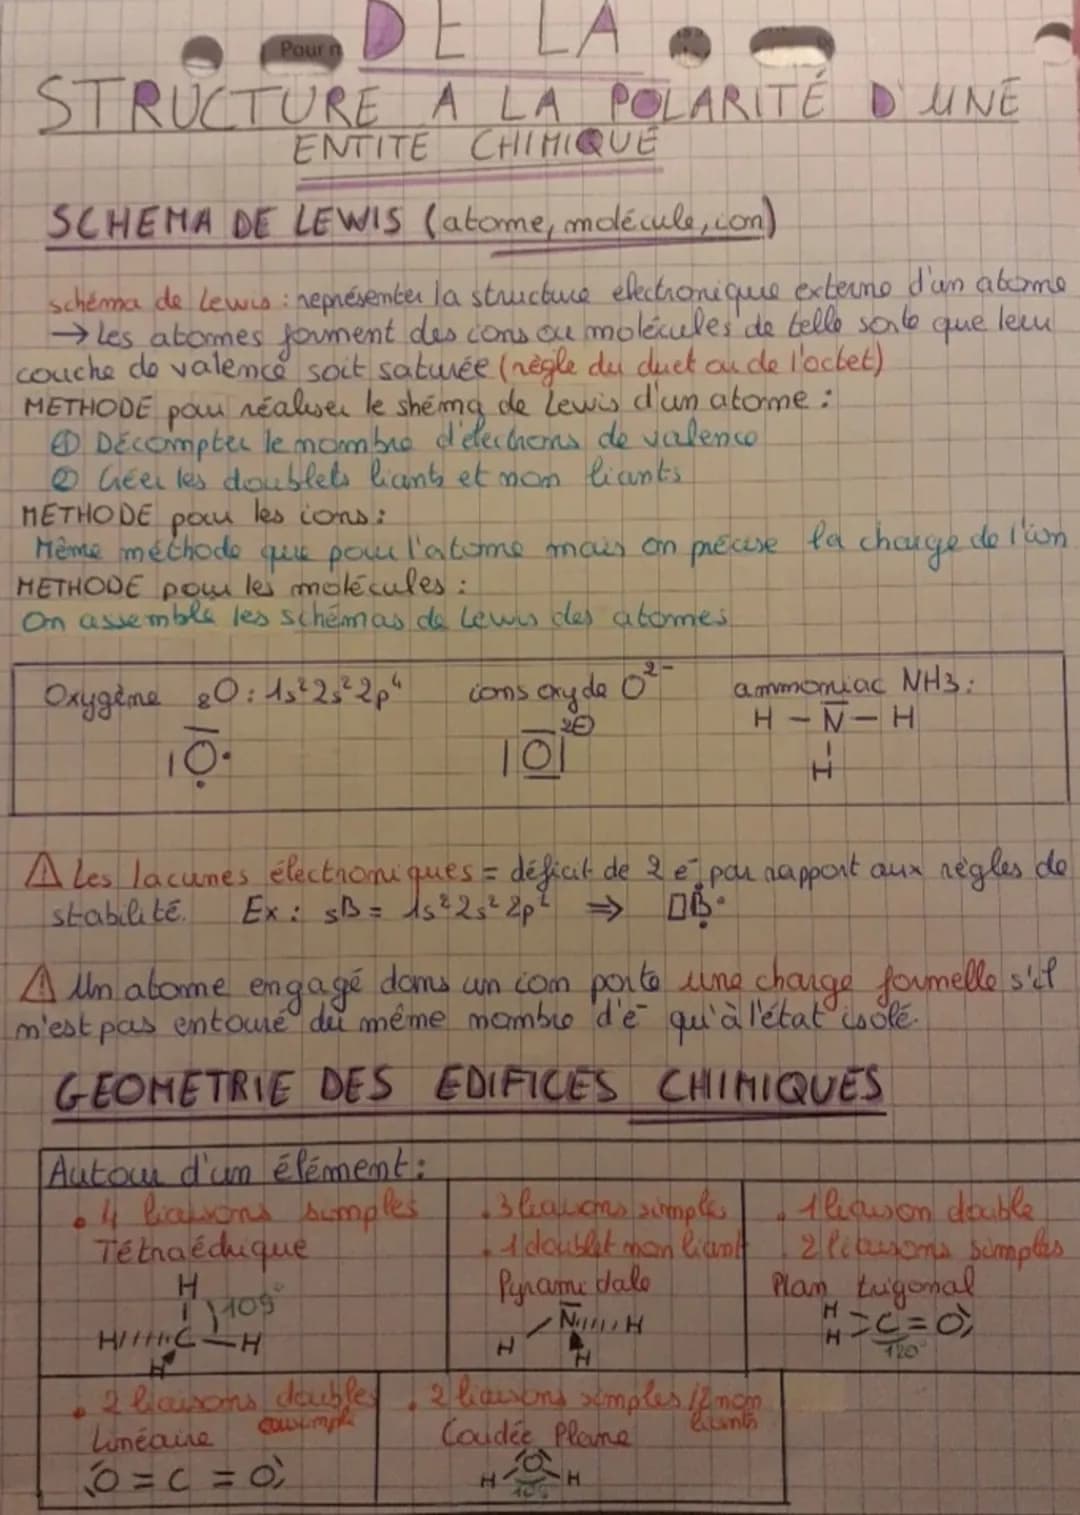 Pour n
DE LA
STRUCTURE A LA POLARITÉ D'UNE
ENTITE CHIMIQUE
SCHEMA DE LEWIS (atome, molécule, ion)
schéma de Lewis : représenter la structure électronique externe d'un atome
→ Les atomes forment des ions ou molécules de telle sorte que leur
couche de valence soit saturée (règle du duet ou de l'octet)
METHODE pour réaliser le shéma de Lewis d'un atome :
① Décompter le nombre d'électrons de valence
② Créer les doublets liants et non liants
METHODE pour les ions :
Même méthode que pour l'atome mais on précise la charge de l'ion
METHODE pour les molécules :
On assemble les schémas de Lewis des atomes
Oxygène ₈O : 1s² 2s² 2p⁴ ions oxyde O²⁻ ammoniac NH3 :
|O• |O| 2⊖ H – N – H
H
⚠ Les lacunes électroniques = déficit de 2 e⁻ par rapport aux règles de
stabilité. Ex : ₅B = 1s² 2s² 2p¹ ⇒ □B•
⚠ Un atome engagé dans un ion porte une charge formelle s'il
n'est pas entouré du même nombre d'e⁻ qu'à l'état isolé.
GEOMETRIE DES EDIFICES CHIMIQUES
Autour d'un élément :
• 4 liaisons simples
Tétraédrique
H
109°
H C – H
H
• 3 liaisons simples
• 1 doublet non liant
Pyramidale
N H
H H
• 1 liaison double
• 2 liaisons simples
Plan trigonal
H
H > C = O
120°
• 2 liaisons doubles
Linéaire
O = C = O
• 2 liaisons simples /2 non
liants
Coudée Plane
H O H